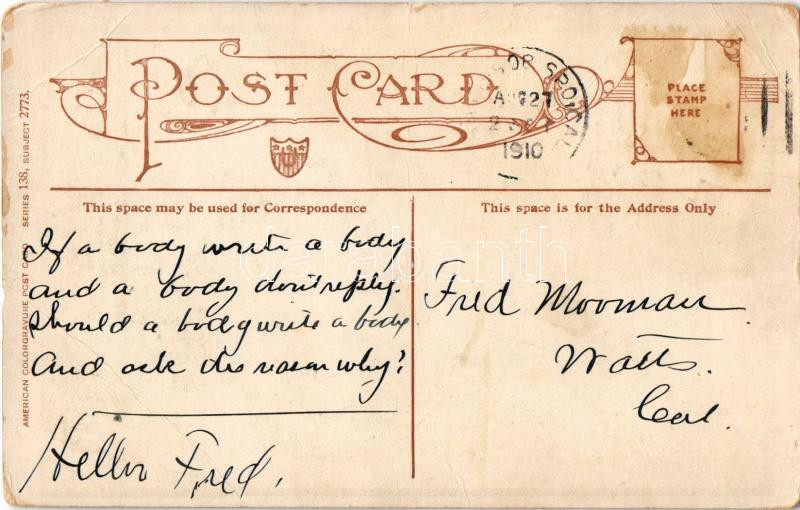 POST CARD
AUG 27
1910
PLACE
STAMP
HERE
AMERICAN COLORGRAVURE POST CARD SERIES 138, SUBJECT 2773.
This space may be used for Correspondence
This space is for the Address Only
If a body write a body
and a body don't reply.
Should a body write a body
And ask the reason why?
Hello Fred.
Fred Mooman
Watts.
Cal.
darabanth